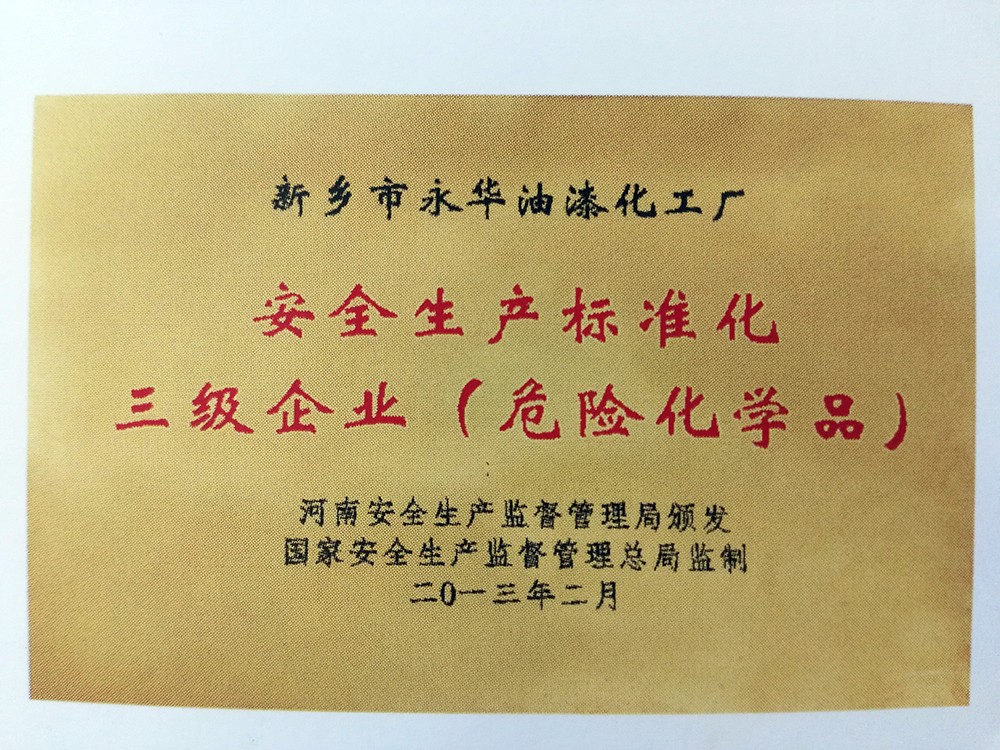 新乡市永华油漆化工厂
安全生产标准化
三级企业（危险化学品）
河南安全生产监督管理局颁发
国家安全生产监督管理总局监制
二0一三年二月